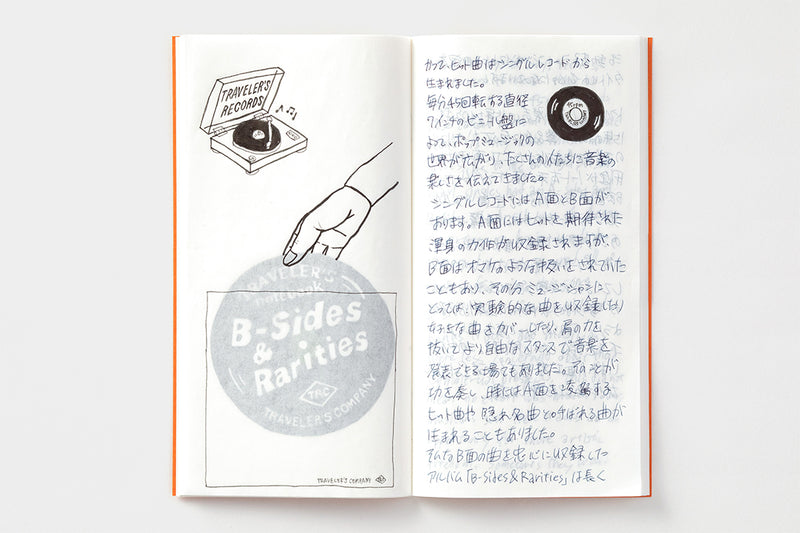 TRAVELER'S
RECORDS
TRAVELER'S
notebook
B-Sides
&
Rarities
TRC
TRAVELER'S COMPANY
TRAVELER'S COMPANY
かつて、ヒット曲はシングルレコードから
生まれました。
毎分45回転する直径
7インチのビニール盤に
よって、ポップミュージックの
世界が広がり、たくさんの人たちに音楽の
楽しさを伝えてきました。
シングルレコードにはA面とB面が
あります。A面にはヒットを期待された
渾身の力作が収録されますが、
B面はオマケのような扱いをされていた
こともあり、その分ミュージシャンに
とっては、実験的な曲を収録したり
好きな曲をカバーしたり、肩の力を
抜いてより自由なスタンスで音楽を
発表できる場でもありました。そのことが
功を奏し、時にはA面を凌駕する
ヒット曲や、隠れ名曲と呼ばれる曲が
生まれることもありました。
そんなB面の曲を中心に収録した
アルバム「B-Sides & Rarities」は長く